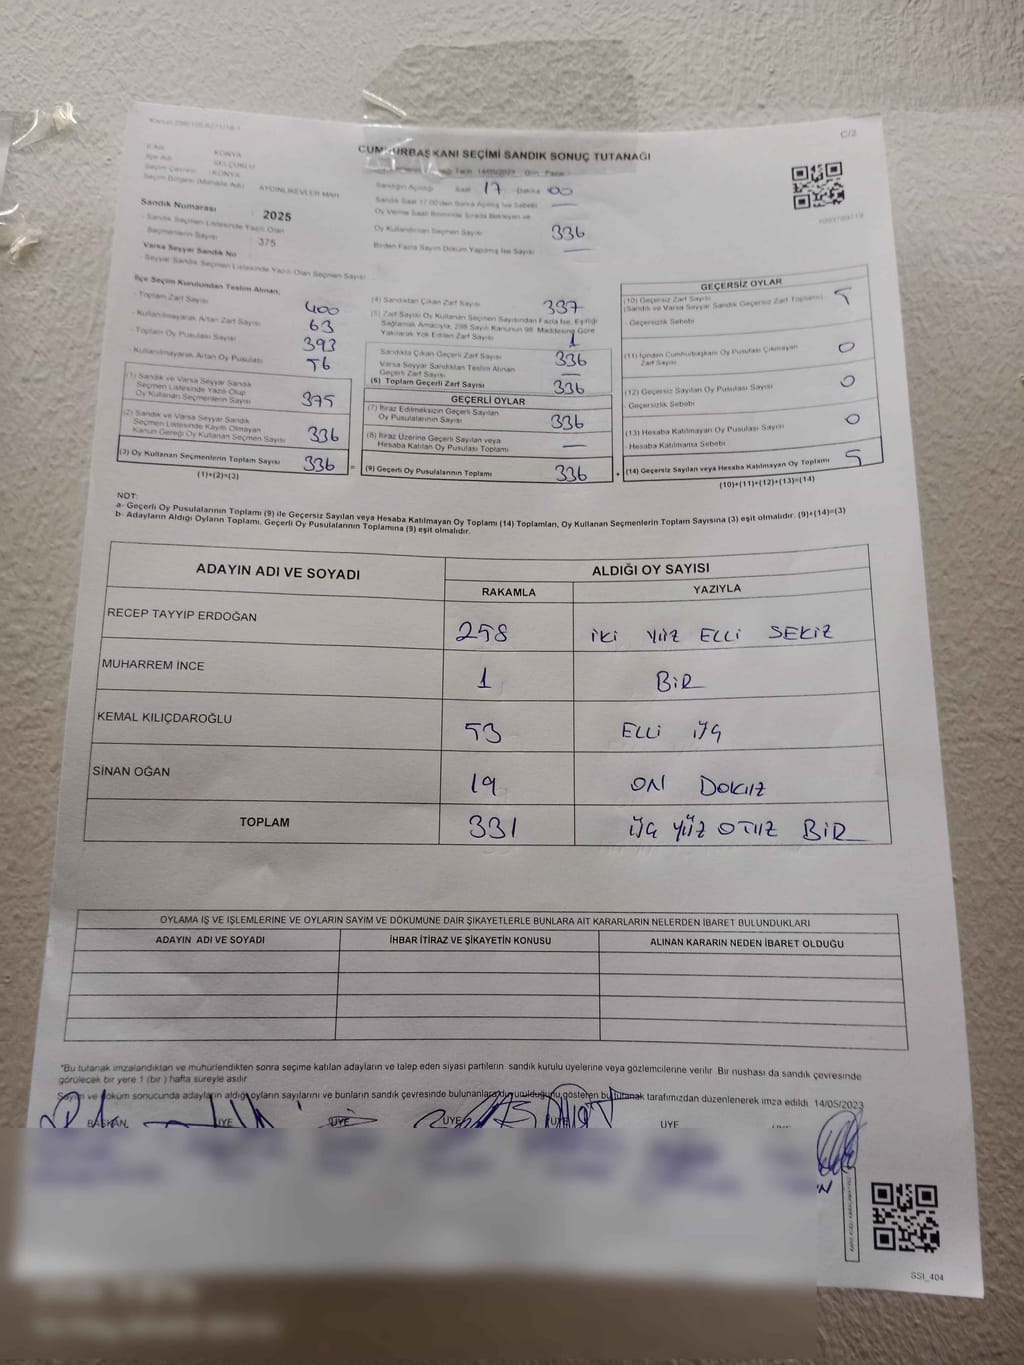 C/2
CUMHURBAŞKANI SEÇİMİ SANDIK SONUÇ TUTANAĞI
İl Adı KONYA
İlçe Adı SELÇUKLU
Seçim Çevresi KONYA
Seçim Bölgesi (Mahalle Adı) AYDINLIKEVLER MAH
Sandık Numarası 2025
Sandık Seçmen Listesinde Yazılı Olan
Seçmenlerin Sayısı 375
Varsa Seyyar Sandık No
Seyyar Sandık Seçmen Listesinde Yazılı Olan Seçmen Sayısı
Tarih 14/05/2023 Gün Pazar
Sandığın Açıldığı Saat 17 Dakika 00
Sandık Saat 17.00'den Sonra Açılmış İse Sebebi —
Oy Verme Saati Bitiminde Sırada Bekleyen ve
Oy Kullandırılan Seçmen Sayısı 336
Birden Fazla Sayım Döküm Yapılmış İse Sayısı —
İlçe Seçim Kurulundan Teslim Alınan;
- Toplam Zarf Sayısı 400
- Kullanılmayarak Artan Zarf Sayısı 63
- Toplam Oy Pusulası Sayısı 393
- Kullanılmayarak Artan Oy Pusulası 56
(1) Sandık ve Varsa Seyyar Sandık
Seçmen Listesinde Yazılı Olup
Oy Kullanan Seçmenlerin Sayısı 375
(2) Sandık ve Varsa Seyyar Sandık
Seçmen Listesinde Kayıtlı Olmayan
Kanun Gereği Oy Kullanan Seçmen Sayısı 336
(3) Oy Kullanan Seçmenlerin Toplam Sayısı 336 =
(1)+(2)=(3)
(4) Sandıktan Çıkan Zarf Sayısı 337
(5) Zarf Sayısı Oy Kullanan Seçmen Sayısından Fazla İse, Eşitliği
Sağlamak Amacıyla, 298 Sayılı Kanunun 98. Maddesine Göre
Yakılarak Yok Edilen Zarf Sayısı 1
Sandıkta Çıkan Geçerli Zarf Sayısı 336
Varsa Seyyar Sandıktan Teslim Alınan
Geçerli Zarf Sayısı —
(6) Toplam Geçerli Zarf Sayısı 336
GEÇERLİ OYLAR
(7) İtiraz Edilmeksizin Geçerli Sayılan
Oy Pusulalarının Sayısı 336
(8) İtiraz Üzerine Geçerli Sayılan veya
Hesaba Katılan Oy Pusulası Toplamı —
(9) Geçerli Oy Pusulalarının Toplamı 336 +
GEÇERSİZ OYLAR
(10) Geçersiz Zarf Sayısı 5
(Sandık ve Varsa Seyyar Sandık Geçersiz Zarf Toplamı)
- Geçersizlik Sebebi
(11) İçinden Cumhurbaşkanı Oy Pusulası Çıkmayan 0
Zarf Sayısı
(12) Geçersiz Sayılan Oy Pusulası Sayısı 0
Geçersizlik Sebebi
(13) Hesaba Katılmayan Oy Pusulası Sayısı 0
Hesaba Katılmama Sebebi
(14) Geçersiz Sayılan veya Hesaba Katılmayan Oy Toplamı 5
(10)+(11)+(12)+(13)=(14)
NOT:
a- Geçerli Oy Pusulaları Toplamı (9) ile Geçersiz Sayılan veya Hesaba Katılmayan Oy Toplamı (14) Toplamları, Oy Kullanan Seçmenlerin Toplam Sayısına (3) eşit olmalıdır. (9)+(14)=(3)
b- Adayların Aldığı Oyların Toplamı, Geçerli Oy Pusulalarının Toplamına (9) eşit olmalıdır.
ADAYIN ADI VE SOYADI ALDIĞI OY SAYISI
RAKAMLA YAZIYLA
RECEP TAYYİP ERDOĞAN 258 İKİ YÜZ ELLİ SEKİZ
MUHARREM İNCE 1 BİR
KEMAL KILIÇDAROĞLU 53 ELLİ ÜÇ
SİNAN OĞAN 19 ON DOKUZ
TOPLAM 331 ÜÇ YÜZ OTUZ BİR
OYLAMA İŞ VE İŞLEMLERİNE VE OYLARIN SAYIM VE DÖKÜMÜNE DAİR ŞİKAYETLERLE BUNLARA AİT KARARLARIN NELERDEN İBARET BULUNDUKLARI
ADAYIN ADI VE SOYADI İHBAR İTİRAZ VE ŞİKAYETİN KONUSU ALINAN KARARIN NEDEN İBARET OLDUĞU
*Bu tutanak imzalandıktan ve mühürlendikten sonra seçime katılan adayların ve talep eden siyasi partilerin sandık kurulu üyelerine veya gözlemcilerine verilir. Bir nüshası da sandık çevresinde
görülecek bir yere 1 (bir) hafta süreyle asılır.
Sayım ve döküm sonucunda adayların aldığı oyların sayılarını ve bunların sandık çevresinde bulunanlara duyurulduğunu gösteren bu tutanak tarafımızdan düzenlenerek imza edildi. 14/05/2023
BAŞKAN ÜYE ÜYE ÜYE ÜYE ÜYE
SSI_404